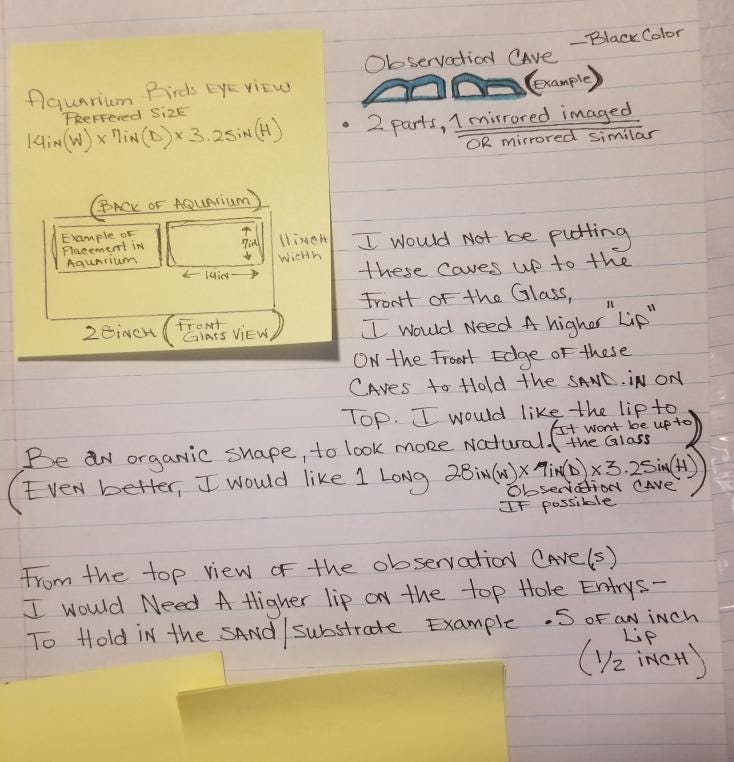 Aquarium Birds EYE VIEW
PREFFERED SIZE
14in(W) x 7in(D) x 3.25in(H)
(BACK OF AQUARIUM)
Example of
Placement in
Aquarium
7in
14in
11 INCH
WIDTH
28INCH (FRONT
GLASS VIEW)
—Black Color
Observation CAVE
(Example)
• 2 parts, 1 mirrored imaged
OR mirrored similar
I would Not be putting
these caves up to the
Front of the Glass,
I would Need A higher "Lip"
ON the Front Edge of these
CAVES to Hold the SAND.iN ON
Top. I would like the lip to
Be an organic shape, to look more natural. (It wont be up to
the Glass)
(Even better, I would like 1 Long 28in(W) x 7in(D) x 3.25in(H)
Observation CAVE
IF possible)
From the top view of the observation CAVE(s)
I would Need A Higher lip on the top Hole Entrys-
To Hold in the SAND/Substrate Example .5 OF AN INCH
Lip
(1/2 iNCH)